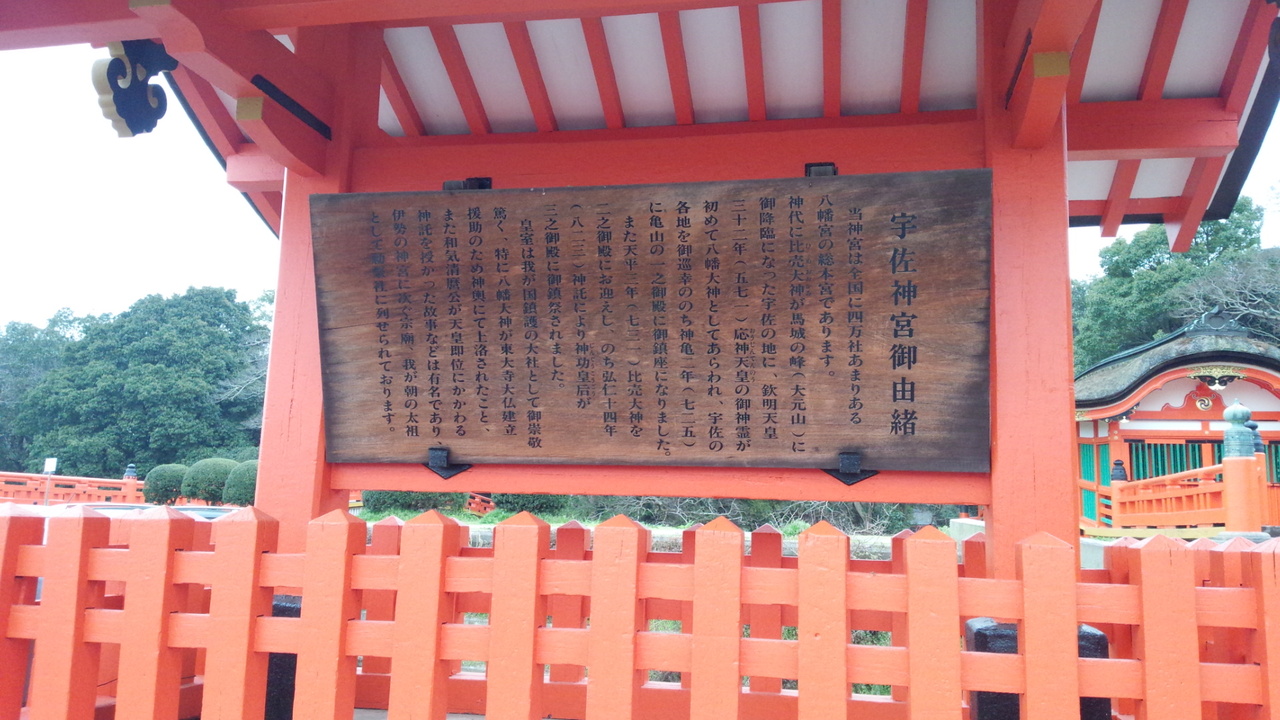 宇佐神宮御由緒
当神宮は全国に四万社あまりある
八幡宮の総本宮であります。
神代に比売大神が馬城の峰(大元山)に
御降臨になった宇佐の地に、欽明天皇
三十二年(五七一)応神天皇の御神霊が
初めて八幡大神としてあらわれ、宇佐の
各地を御巡幸ののち神亀二年(七二五)
に亀山の一之御殿に御鎮座になりました。
また天平三年(七三一)比売大神を
二之御殿にお迎えし、のち弘仁十四年
(八二三)神託により神功皇后が
三之御殿に御鎮祭されました。
皇室は我が国鎮護の大社として御崇敬
篤く、特に八幡大神が東大寺大仏建立
援助のため神輿にて上洛されたこと、
また和気清麿公が天皇即位にかかわる
神託を授かった故事などは有名であり、
伊勢の神宮に次ぐ宗廟、我が朝の太祖
として勅祭社に列せられております。